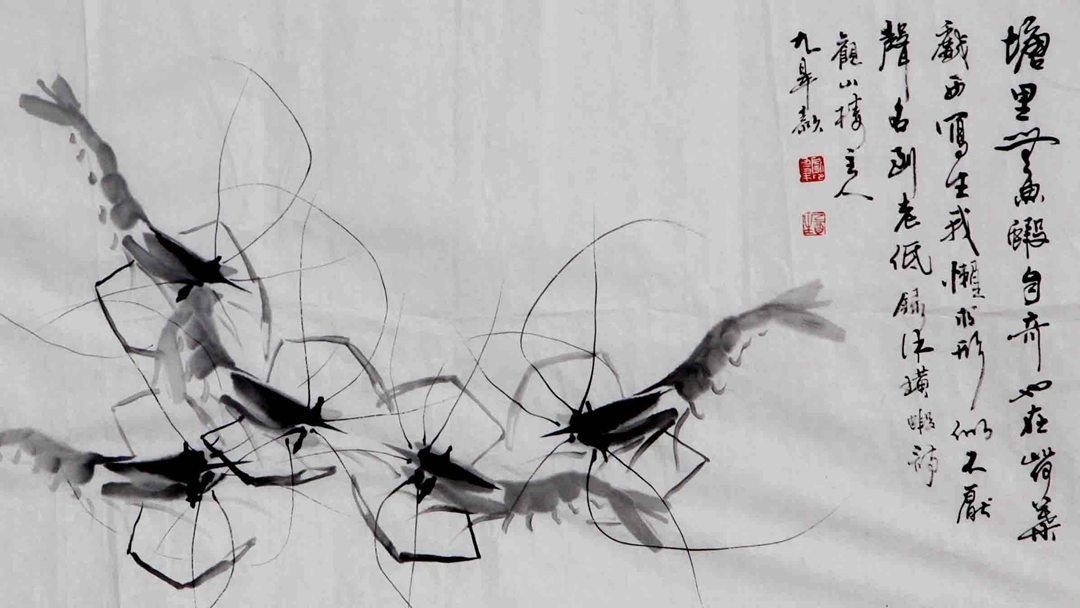 塘里無魚蝦自奇也在荷葉
戲西寫生我懶求形似不厭
聲名到老低錄璜蝦詩
觀山樓主人
九皋款